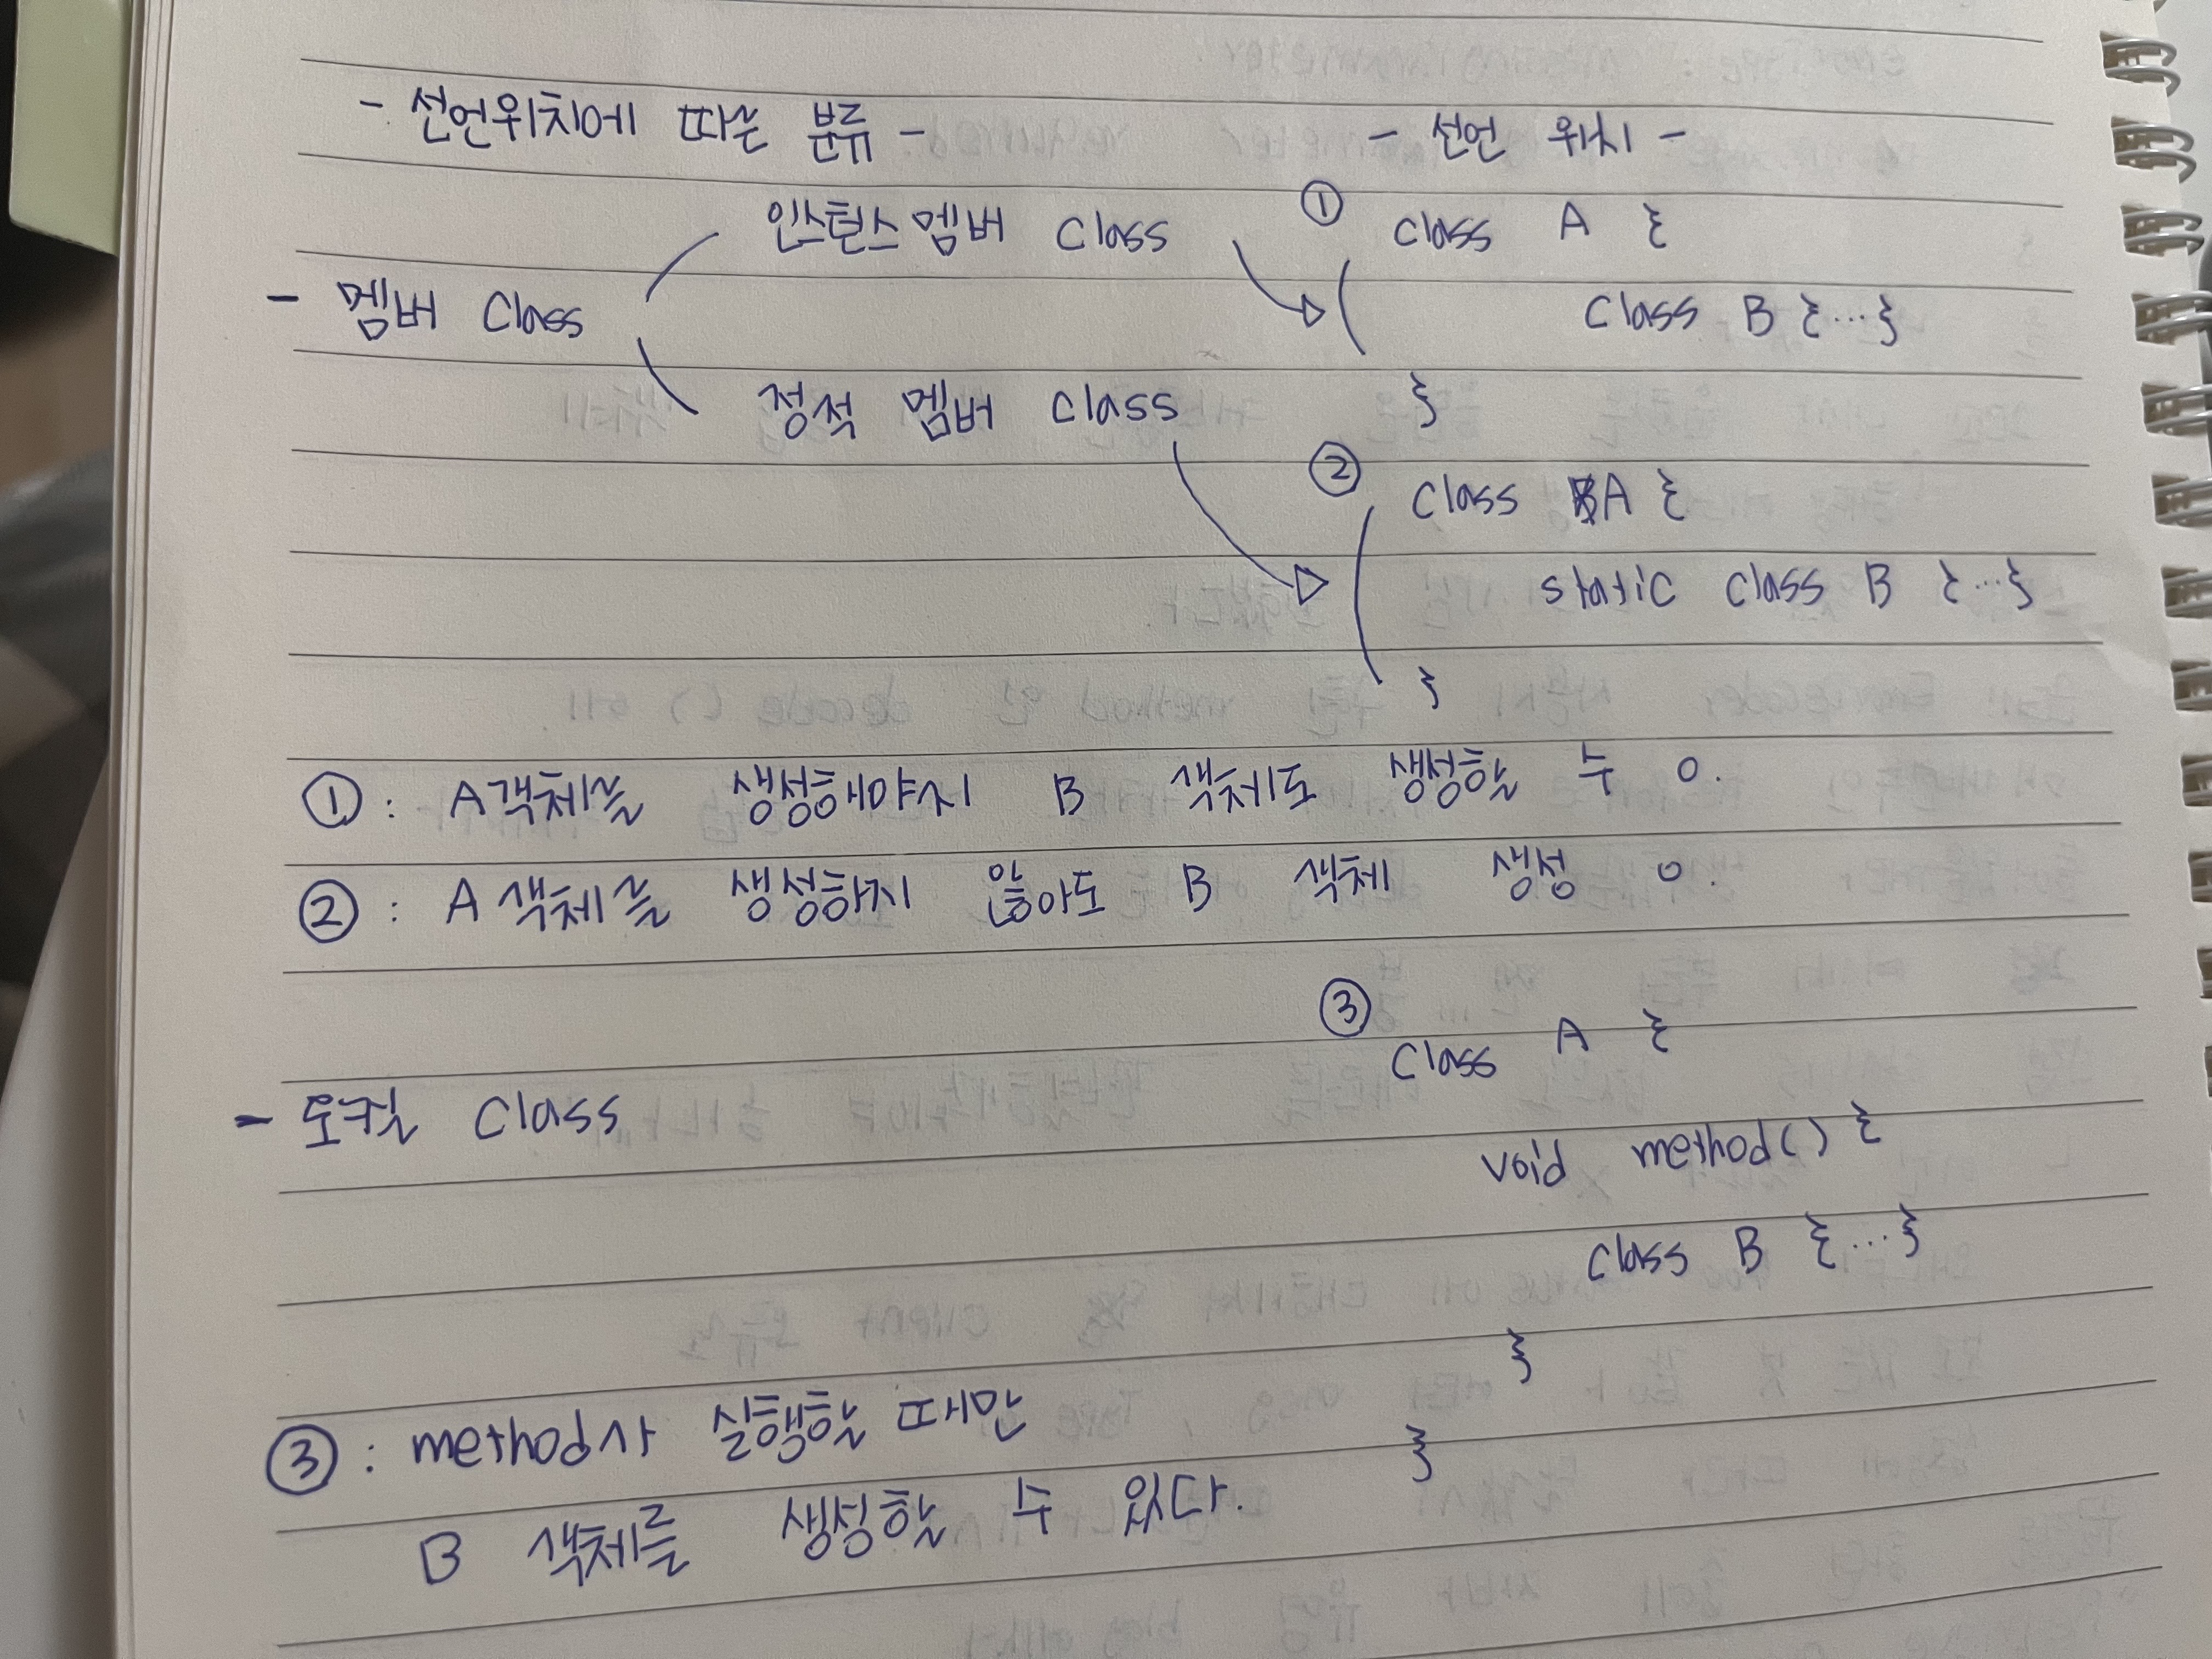 - 선언위치에 따른 분류 -
- 선언 위치 -
- 멤버 Class
인스턴스 멤버 Class
정적 멤버 Class
① class A {
class B {...}
}
② class A {
static class B {...}
}
① : A객체를 생성해야지 B 객체도 생성할 수 o.
② : A 객체를 생성하지 않아도 B 객체 생성 o.
- 로컬 Class
③ class A {
void method() {
class B {...}
}
}
③ : method가 실행할 때만
B 객체를 생성할 수 있다.